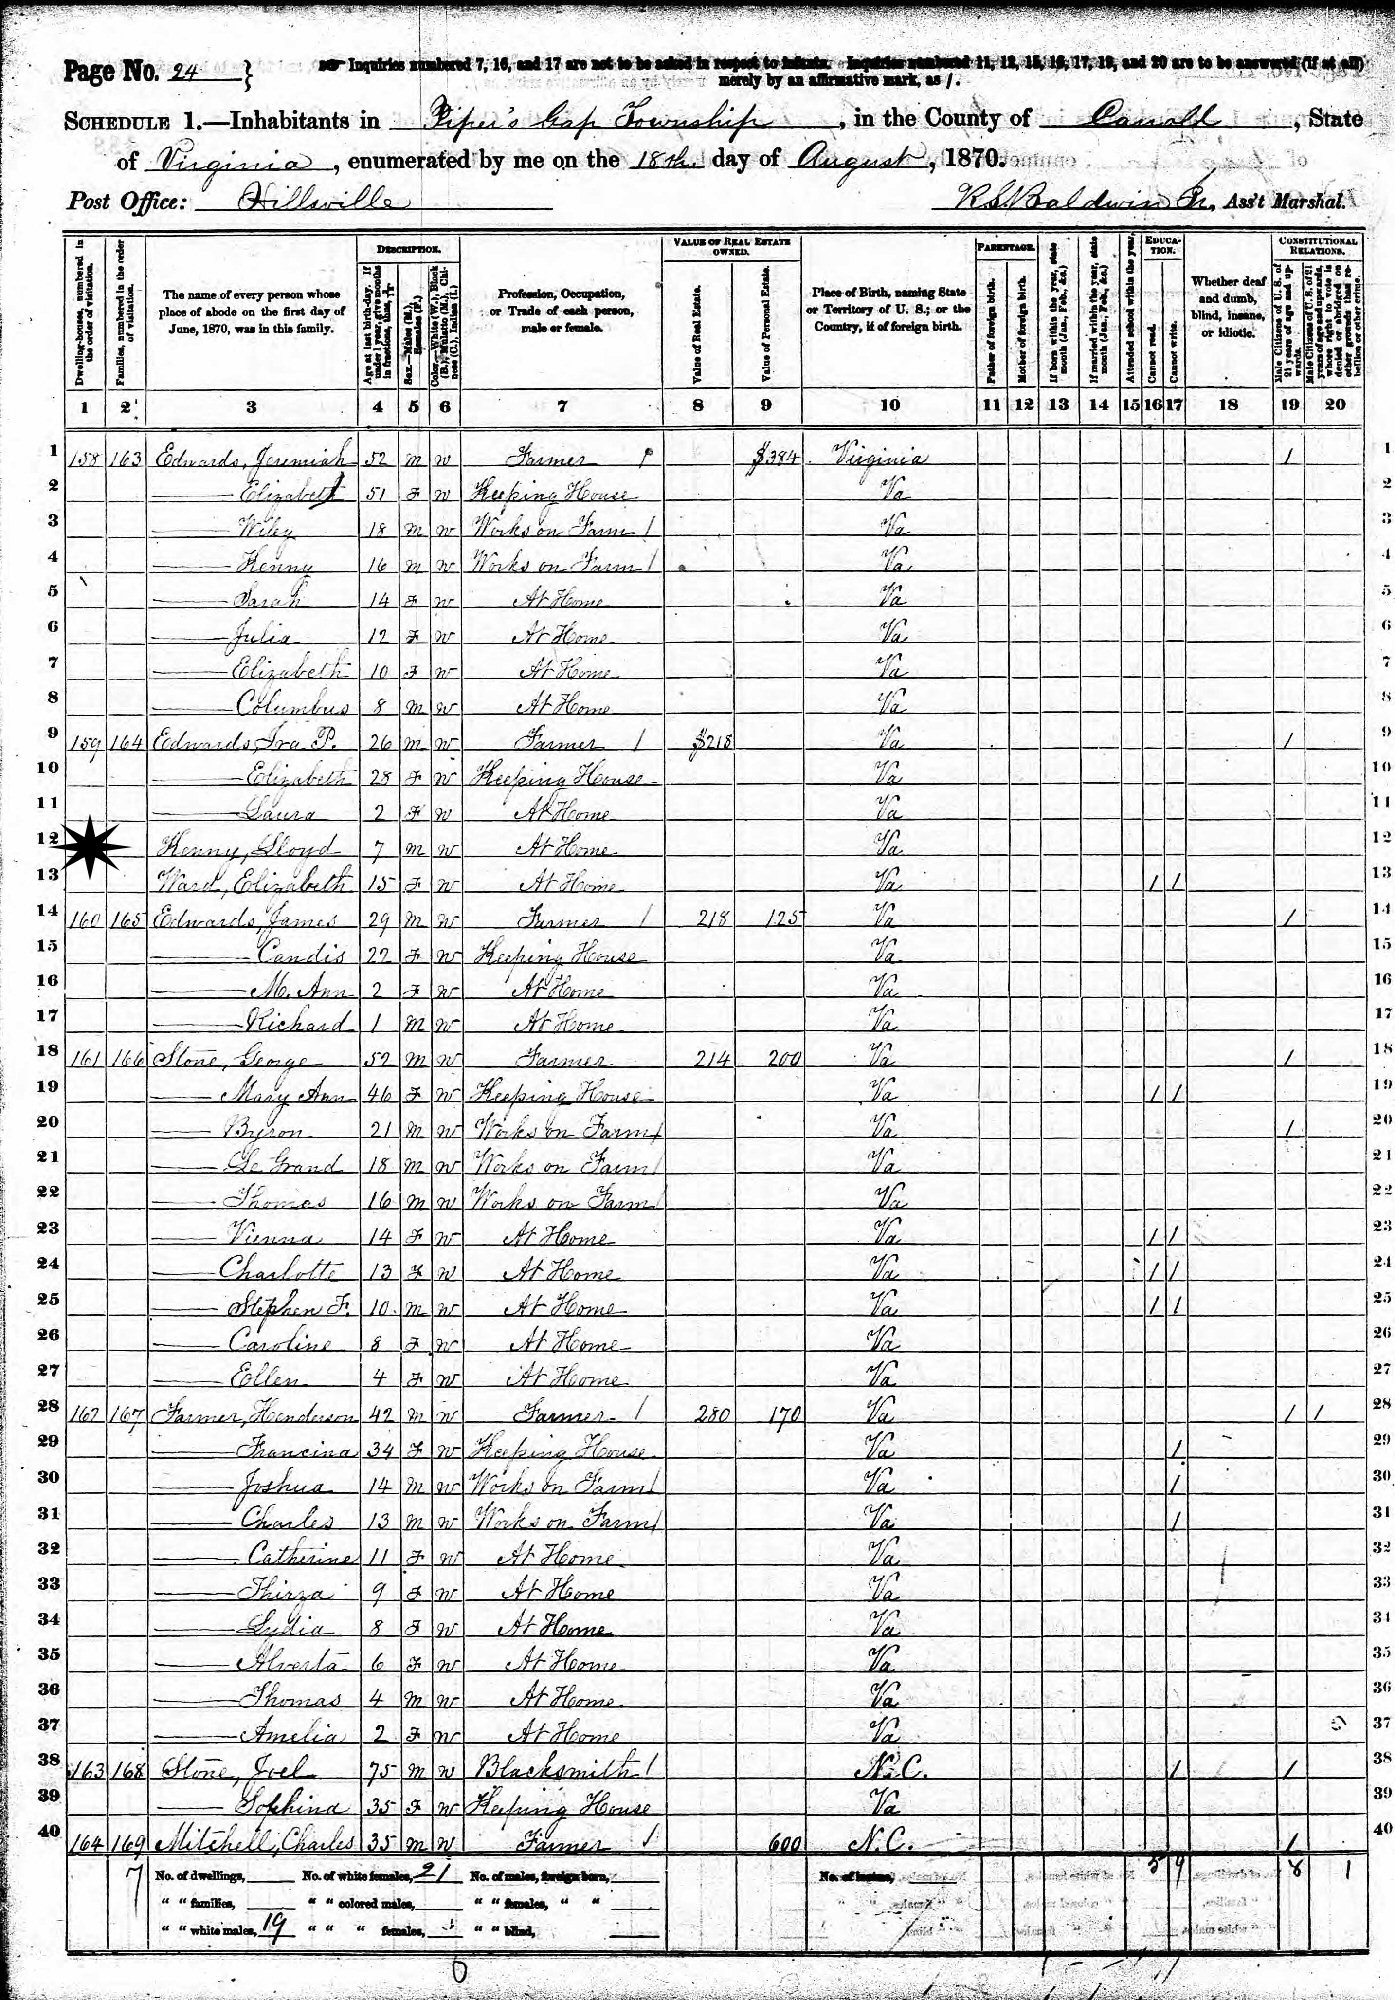 Page No. 24 }
Inquiries numbered 7, 16, and 17 are not to be asked in respect to infants. Inquiries numbered 11, 12, 15, 16, 17, 19, and 20 are to be answered (if at all)
merely by an affirmative mark, as /.
SCHEDULE 1.—Inhabitants in Piper's Gap Township, in the County of Carroll, State
of Virginia, enumerated by me on the 18th day of August, 1870.
Post Office: Hillsville R.S. Baldwin Jr, Ass't Marshal.
Dwelling-houses, numbered in the order of visitation.
Families, numbered in the order of visitation.
The name of every person whose place of abode on the first day of June, 1870, was in this family.
DESCRIPTION.
Age at last birth-day. If under 1 year, give months in fractions, thus, 3/12
Sex.—Males (M.), Females (F.)
Color.—White (W.), Black (B.), Mulatto (M.), Chinese (C.), Indian (I.)
Profession, Occupation, or Trade of each person, male or female.
VALUE OF REAL ESTATE OWNED.
Value of Real Estate.
Value of Personal Estate.
Place of Birth, naming State or Territory of U. S.; or the Country, if of foreign birth.
PARENTAGE.
Father of foreign birth.
Mother of foreign birth.
If born within the year, state month (Jan., Feb., &c.)
If married within the year, state month (Jan., Feb., &c.)
Attended school within the year.
EDUCATION.
Cannot read.
Cannot write.
Whether deaf and dumb, blind, insane, or idiotic.
CONSTITUTIONAL RELATIONS.
Male Citizens of U. S. of 21 years of age and upwards.
Male Citizens of U. S. of 21 years of age and upwards, whose right to vote is denied or abridged on other grounds than rebellion or other crime.
1 2 3 4 5 6 7 8 9 10 11 12 13 14 15 16 17 18 19 20
1 158 163 Edwards, Jeremiah 52 m w Farmer / $384 Virginia / 1
2 — Elizabeth 51 F w Keeping House Va 2
3 — Wiley 18 m w Works on Farm / Va 3
4 — Kenny 16 m w Works on Farm / Va 4
5 — Sarah 14 F w At Home Va 5
6 — Julia 12 F w At Home Va 6
7 — Elizabeth 10 F w At Home Va 7
8 — Columbus 8 m w At Home Va 8
9 159 164 Edwards, Ira P. 26 m w Farmer / $218 Va / 9
10 — Elizabeth 28 F w Keeping House Va 10
11 — Laura 2 F w At Home Va 11
12 Kenny, Lloyd 7 m w At Home Va 12
13 Ward, Elizabeth 15 F w At Home Va / / 13
14 160 165 Edwards, James 29 m w Farmer / 218 125 Va / 14
15 — Candis 22 F w Keeping House Va 15
16 — M. Ann 2 F w At Home Va 16
17 — Richard 1 m w At Home Va 17
18 161 166 Stone, George 52 m w Farmer 214 200 Va / 18
19 — Mary Ann 46 F w Keeping House Va / / 19
20 — Byron 21 m w Works on Farm / Va / 20
21 — Le Grand 18 m w Works on Farm / Va 21
22 — Thomas 16 m w Works on Farm / Va 22
23 — Vienna 14 F w At Home Va / / 23
24 — Charlotte 13 F w At Home Va / / 24
25 — Stephen F. 10 m w At Home Va / / 25
26 — Caroline 8 F w At Home Va 26
27 — Ellen 4 F w At Home Va 27
28 162 167 Farmer, Henderson 42 m w Farmer / 280 170 Va / / 28
29 — Francina 34 F w Keeping House Va / 29
30 — Joshua 14 m w Works on Farm / Va / 30
31 — Charles 13 m w Works on Farm / Va / 31
32 — Catherine 11 F w At Home Va 32
33 — Thirza 9 F w At Home Va 33
34 — Lydia 8 F w At Home Va 34
35 — Alverta 6 F w At Home Va 35
36 — Thomas 4 m w At Home Va 36
37 — Amelia 2 F w At Home Va 37
38 163 168 Stone, Joel 75 m w Blacksmith / N.C. / / 38
39 — Sophina 35 F w Keeping House Va 39
40 164 169 Mitchell, Charles 35 m w Farmer / 600 N.C. / 40
7 No. of dwellings, No. of white females, 21 No. of males, foreign born, No. of insane, 5 9 8 1
" " families, " " colored males, " " females, " "
" " white males, 19 " " " females, " " blind,